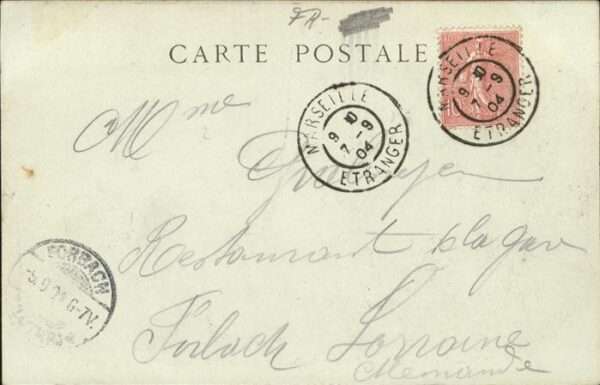 FR-
CARTE POSTALE
MARSEILLE
9 10
7 - 9
04
ETRANGER
MARSEILLE
9 10
7 - 9
04
ETRANGER
Mme
Restaurant de la gare
FORBACH
5.9.04.6-7V.
Forbach Lorraine
Allemande